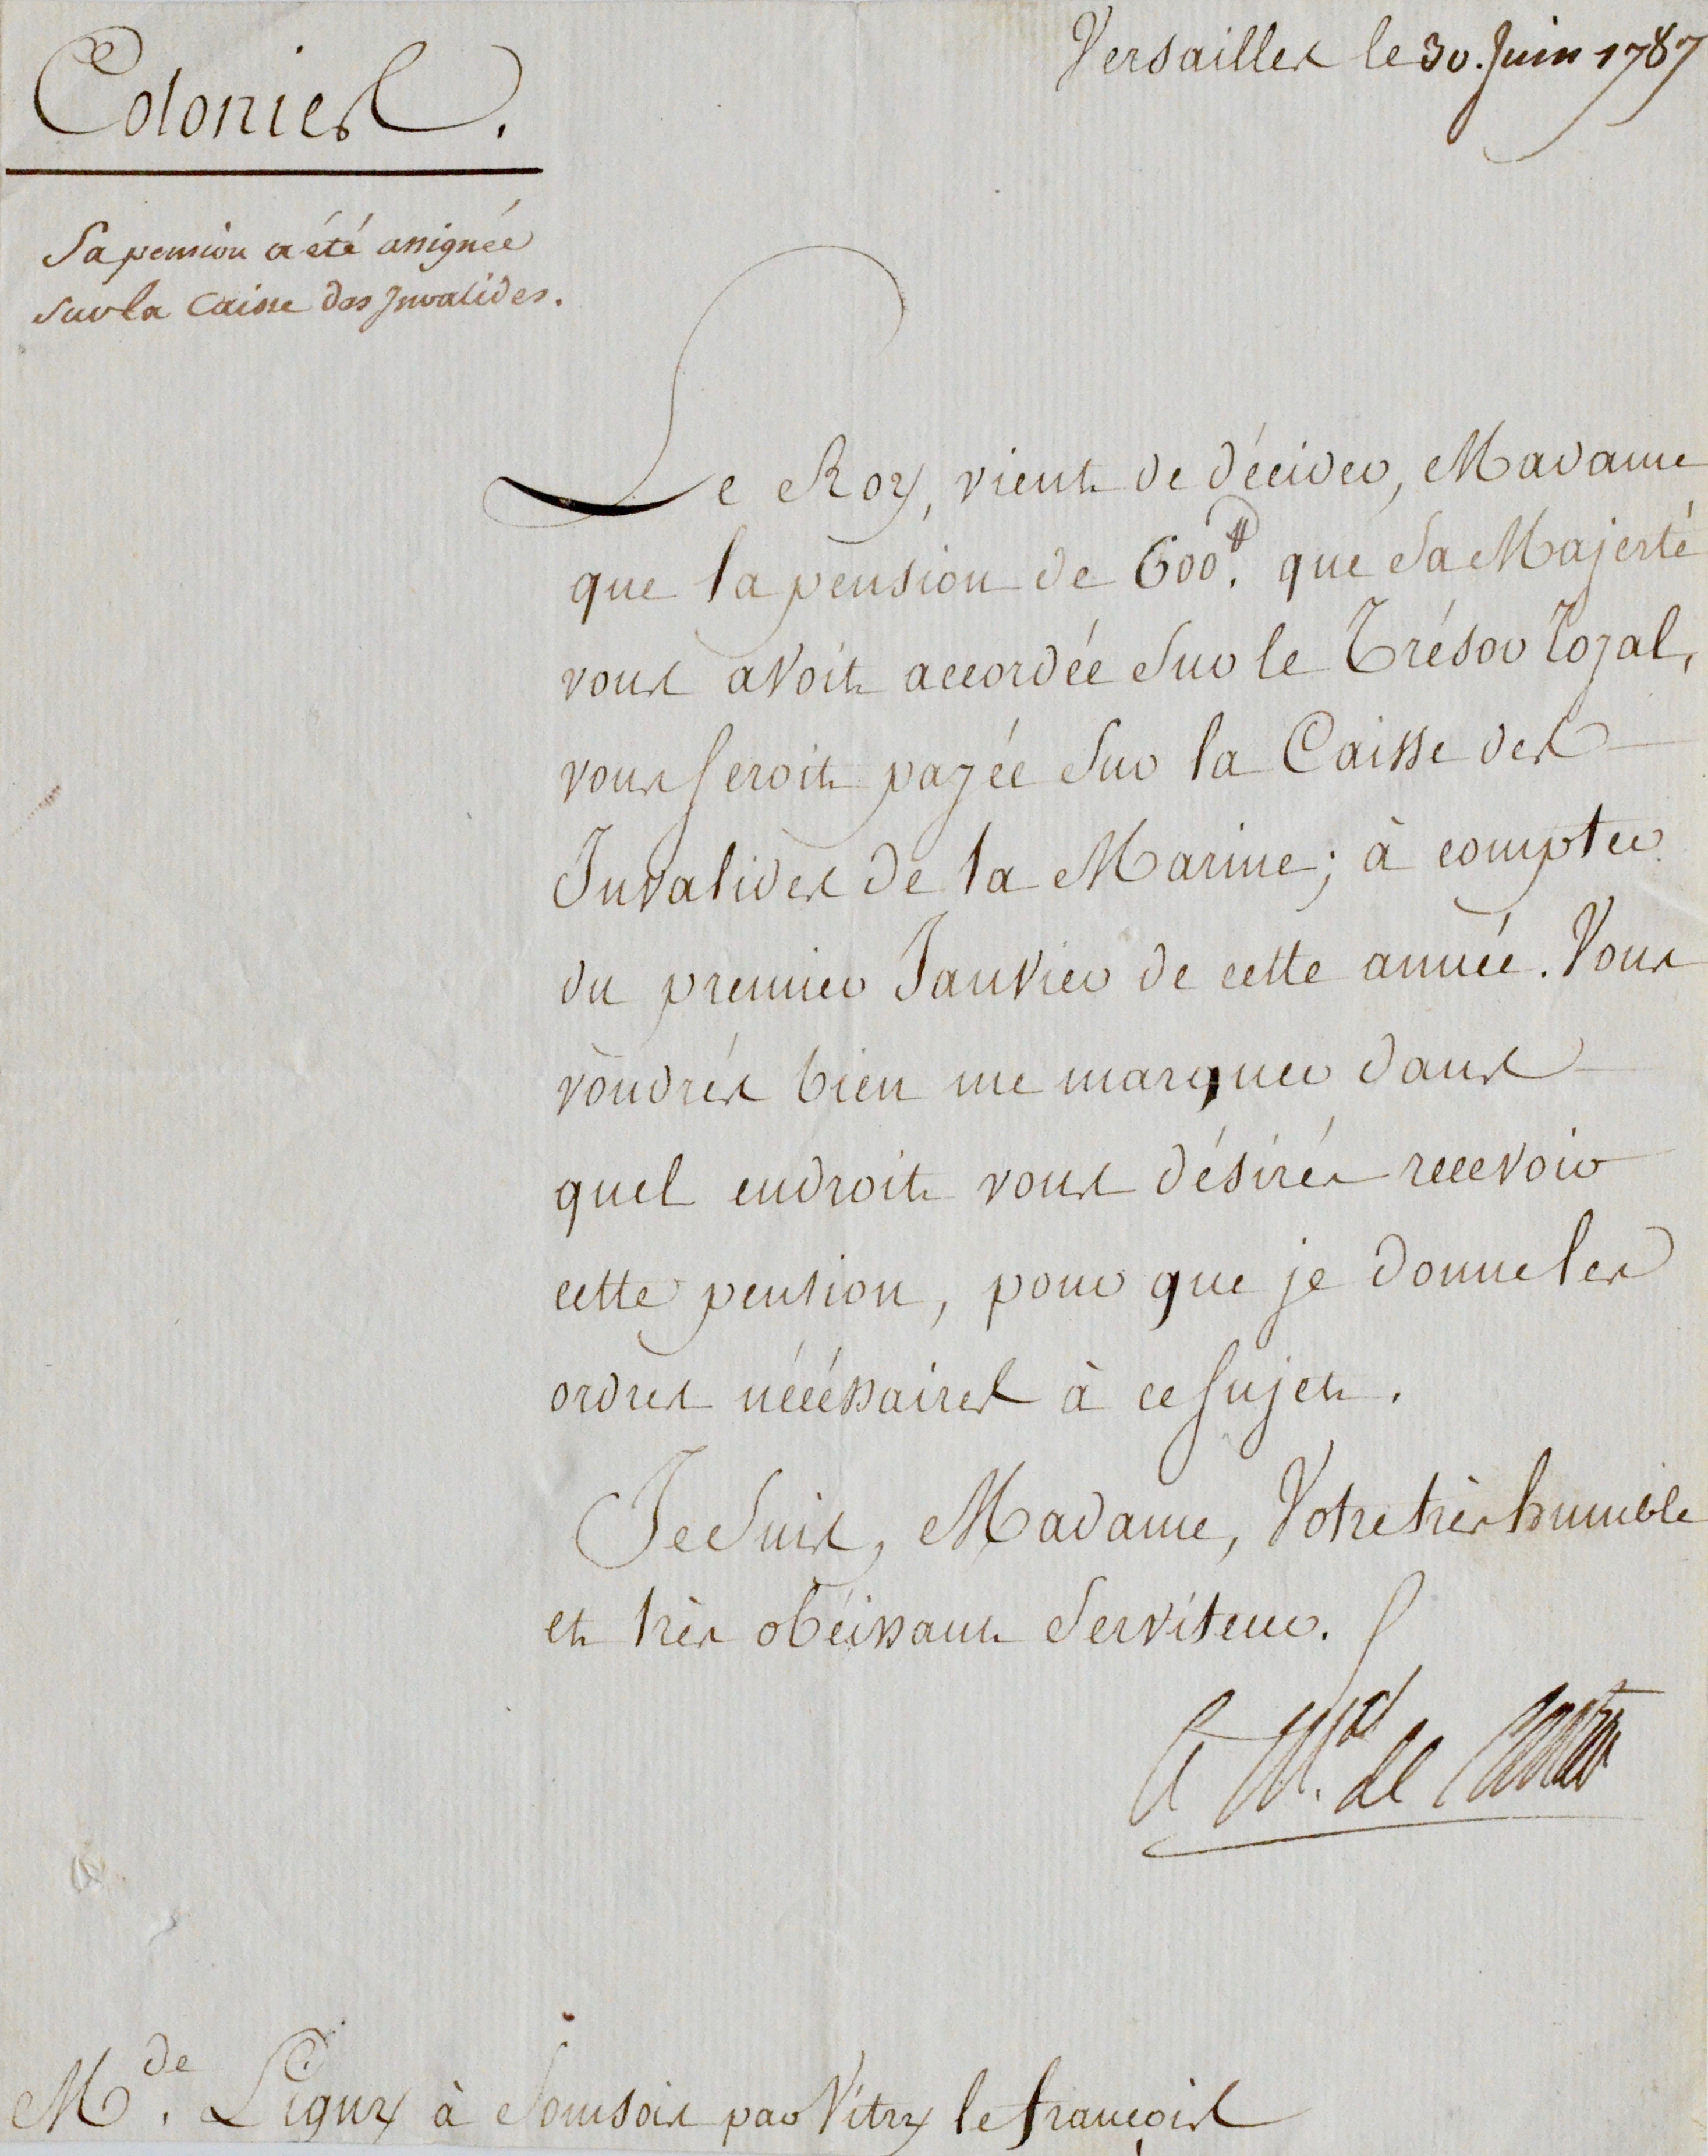 Versailles le 30. Juin 1787
Colonies.
Sa pension a été assignée
sur la Caisse des Invalides.
Le Roy, vient de décider, Madame
que la pension de 600.₶ que Sa Majesté
vous avoit accordée Sur le Trésor Royal,
vous seroit payée Sur la Caisse des
Invalides de la Marine; à compter
du premier Janvier de cette année. Vous
voudrés bien me marquer dans
quel endroit vous désirés recevoir
cette pension, pour que je donne les
ordres nécéssaires à ce sujet.
Je Suis, Madame, Votre très humble
et très obéissant Serviteur.
le Mal. de Castries
Mde. Ligny à Somsois par Vitry le françois